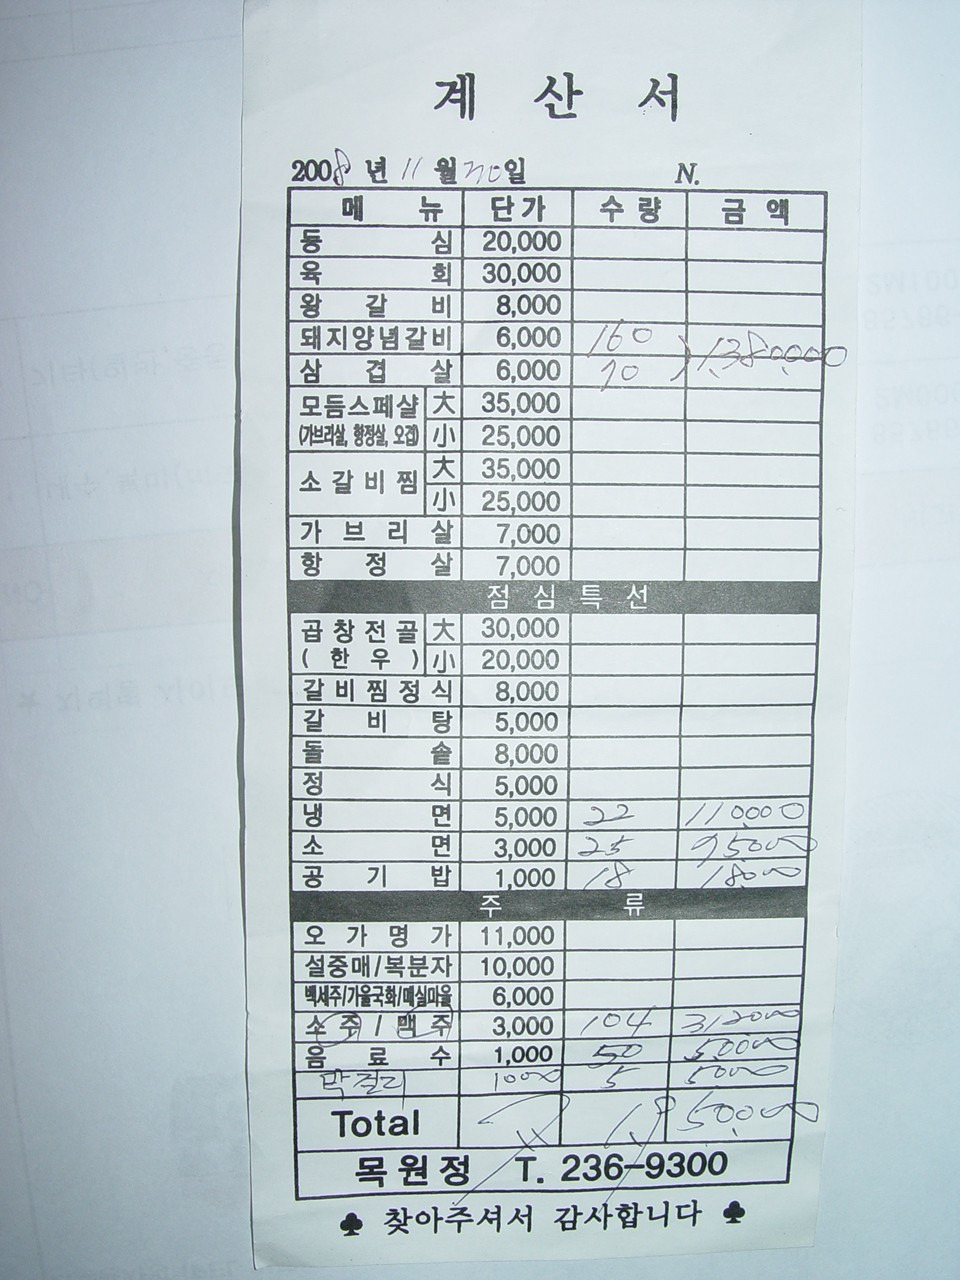 계 산 서
2008 년 11 월 30 일 N.
메 뉴 단가 수량 금액
등 심 20,000
육 회 30,000
왕 갈 비 8,000
돼지양념갈비 6,000 160
삼 겹 살 6,000 70 1,380,000
모듬스페샬 大 35,000
(가브리살, 항정살, 오겹) 小 25,000
소갈비찜 大 35,000
小 25,000
가 브 리 살 7,000
항 정 살 7,000
점 심 특 선
곱창전골 大 30,000
(한우) 小 20,000
갈비찜정식 8,000
갈 비 탕 5,000
돌 솥 8,000
정 식 5,000
냉 면 5,000 22 110000
소 면 3,000 25 95000
공 기 밥 1,000 18 18000
주 류
오 가 명 가 11,000
설중매/복분자 10,000
백세주/가을국화/매실마을 6,000
소 주 / 맥 주 3,000 104 312000
음 료 수 1,000 50 50000
막걸리 1000 5 5000
Total
목원정 T. 236-9300
♣ 찾아주셔서 감사합니다 ♣